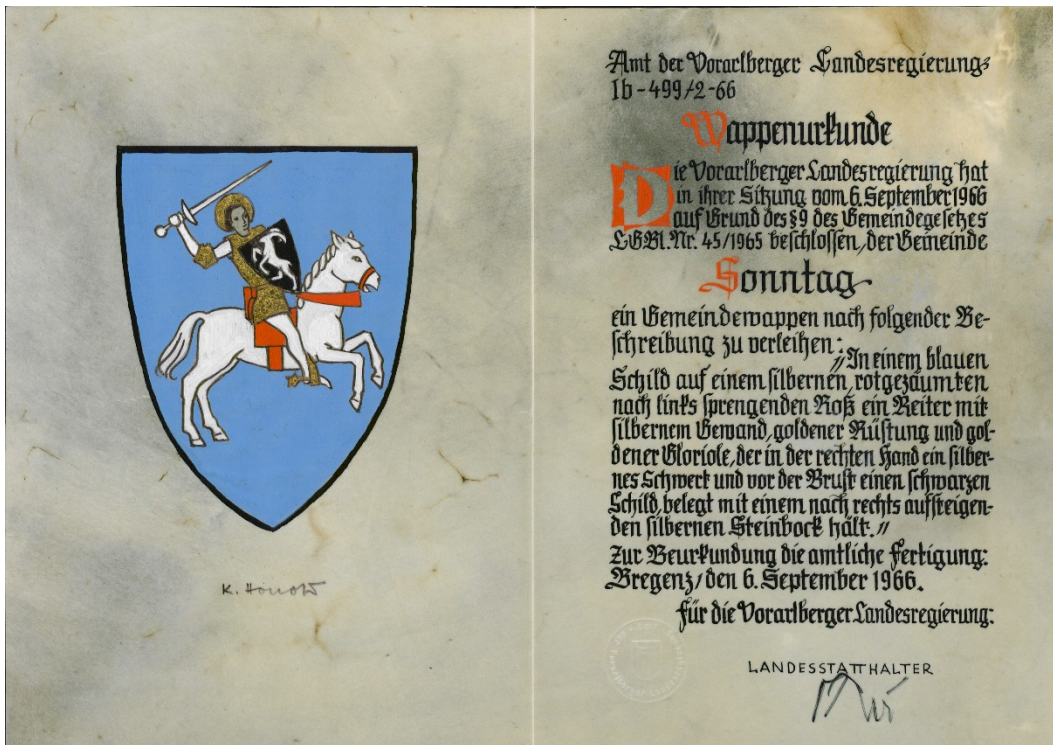 K. Honold
Amt der Vorarlberger Landesregierung
Ib-499/2-66
Wappenurkunde
Die Vorarlberger Landesregierung hat
in ihrer Sitzung vom 6. September 1966
auf Grund des § 9 des Gemeindegesetzes
L.G.Bl. Nr. 45/1965 beschlossen, der Gemeinde
Sonntag
ein Gemeindewappen nach folgender Be-
schreibung zu verleihen:
"In einem blauen
Schild auf einem silbernen, rotgezäumten
nach links sprengenden Roß ein Reiter mit
silbernem Gewand, goldener Rüstung und gol-
dener Gloriole, der in der rechten Hand ein silber-
nes Schwert und vor der Brust einen schwarzen
Schild, belegt mit einem nach rechts aufsteigen-
den silbernen Steinbock hält."
Zur Beurkundung die amtliche Fertigung:
Bregenz, den 6. September 1966.
Für die Vorarlberger Landesregierung:
LANDESSTATTHALTER